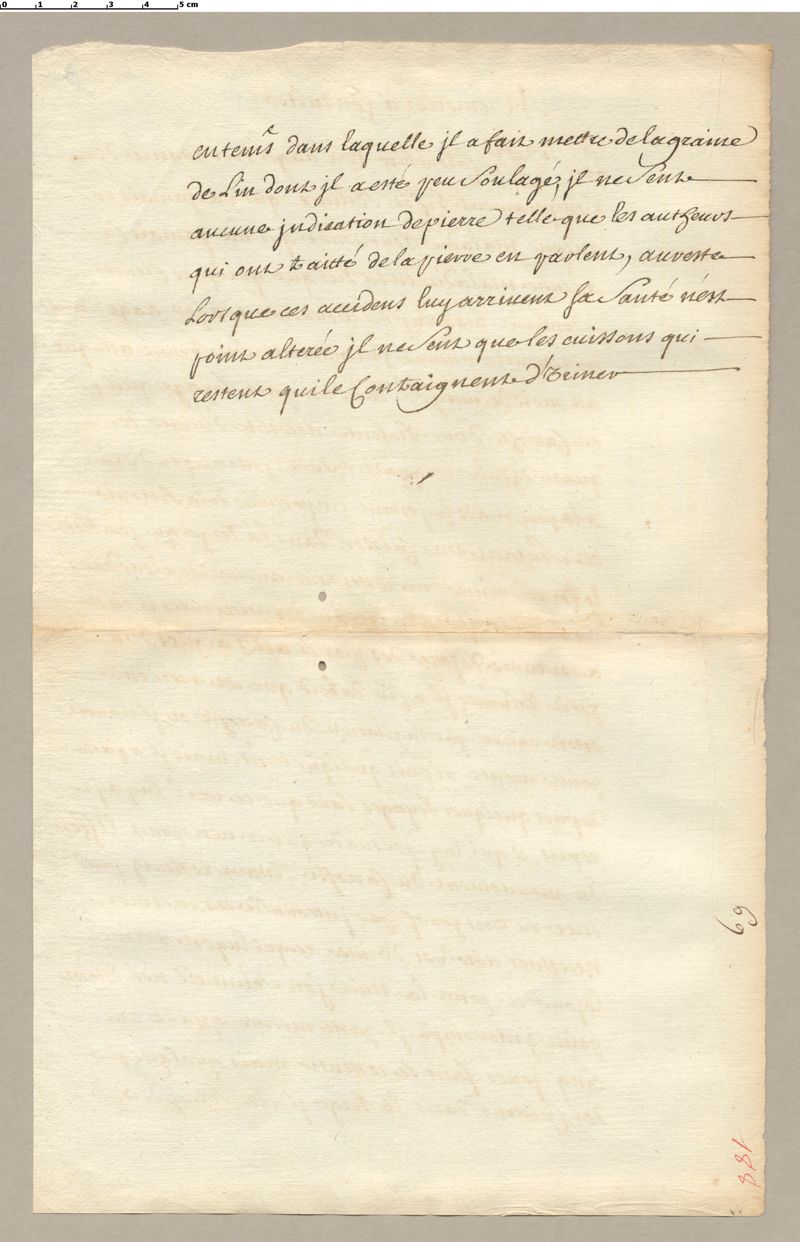 en tems dans laquelle jl a fait mettre de la graine
de Lin dont jl a esté peu soulagé, jl ne sent
aucune jndication de pierre telle que les autheurs
qui ont traitté de la pierre en parlent, au reste
Lorsque ces accidens luy arrivent sa santé n'est
point alterée jl ne sent que les cuissons qui
restent qui le Contraignent d'Uriner
69
188